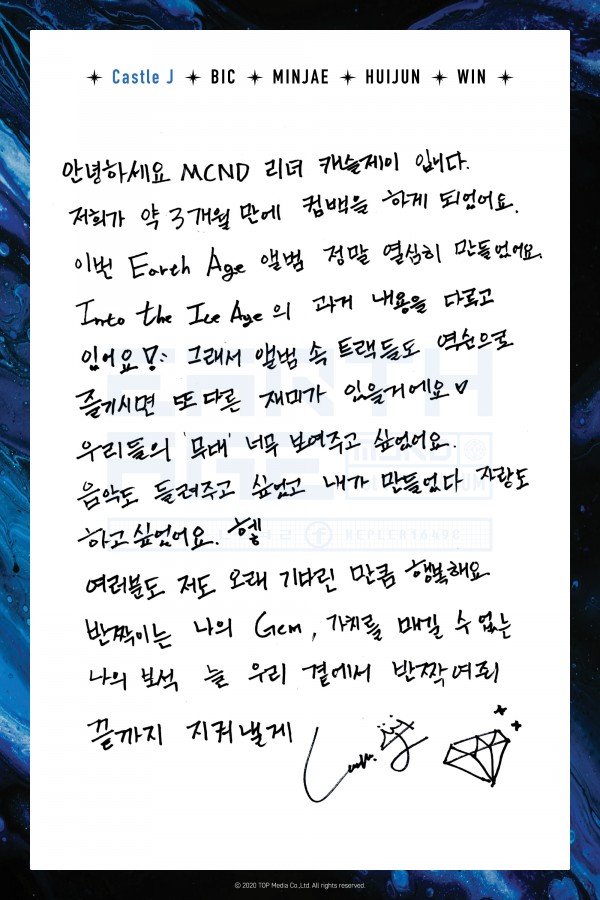 Castle J BIC MINJAE HUIJUN WIN
안녕하세요 MCND 리더 캐슬제이 입니다.
저희가 약 3개월 만에 컴백을 하게 되었어요.
이번 Earth Age 앨범 정말 열심히 만들었어요.
Into the Ice Age의 과거 내용을 다루고
있어요!! 그래서 앨범 속 트랙들도 역순으로
즐기시면 또 다른 재미가 있을거에요♡
우리들의 '무대' 너무 보여주고 싶었어요.
음악도 들려주고 싶었고 내가 만들었다 자랑도
하고 싶었어요. 헿
여러분도 저도 오래 기다린 만큼 행복해요
반짝이는 나의 Gem, 가치를 매길 수 없는
나의 보석 늘 우리 곁에서 반짝여줘
끝까지 지켜낼게
EARTH
AGE MCND
KEPLER1649C
© 2020 TOP Media Co.,Ltd. All rights reserved.